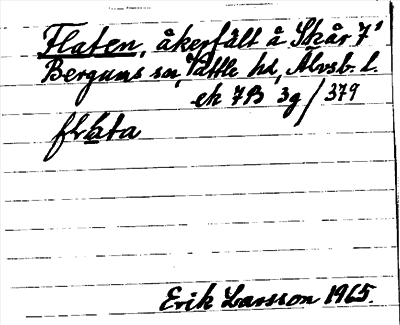 Flaten, åkerfält å Skår 7'
Bergums sn, Vättle hd, Älvsb. l.
ek 7B 3g/379
flata
Erik Larsson 1965.